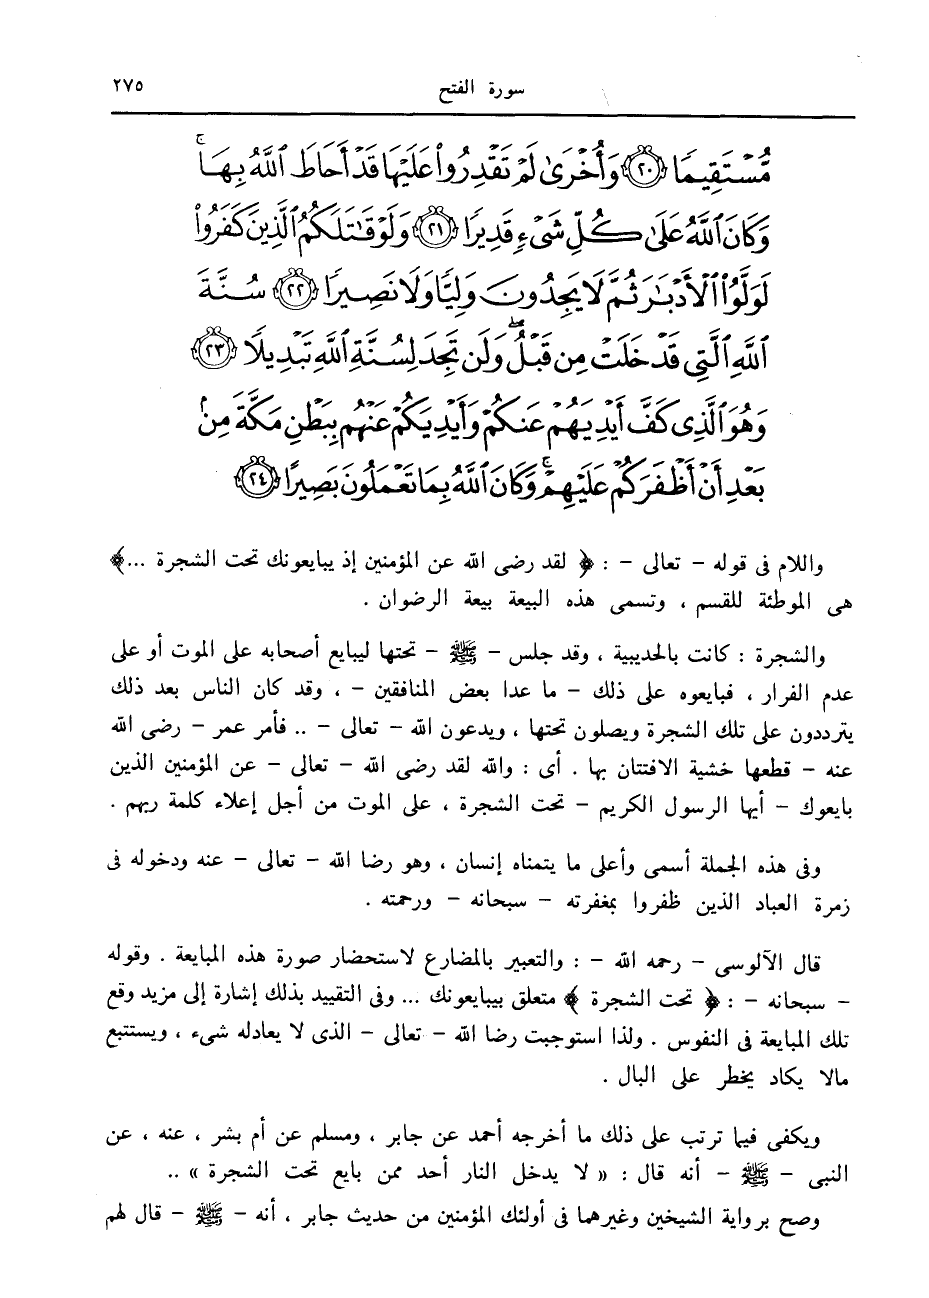 سورة الفتح ٢٧٥
مُّسْتَقِيمًا ﴿٢٠﴾ وَأُخْرَىٰ لَمْ تَقْدِرُوا۟ عَلَيْهَا قَدْ أَحَاطَ ٱللَّهُ بِهَا ۚ
وَكَانَ ٱللَّهُ عَلَىٰ كُلِّ شَىْءٍ قَدِيرًا ﴿٢١﴾ وَلَوْ قَـٰتَلَكُمُ ٱلَّذِينَ كَفَرُوا۟
لَوَلَّوُا۟ ٱلْأَدْبَـٰرَ ثُمَّ لَا يَجِدُونَ وَلِيًّا وَلَا نَصِيرًا ﴿٢٢﴾ سُنَّةَ
ٱللَّهِ ٱلَّتِى قَدْ خَلَتْ مِن قَبْلُ ۖ وَلَن تَجِدَ لِسُنَّةِ ٱللَّهِ تَبْدِيلًا ﴿٢٣﴾
وَهُوَ ٱلَّذِى كَفَّ أَيْدِيَهُمْ عَنكُمْ وَأَيْدِيَكُمْ عَنْهُم بِبَطْنِ مَكَّةَ مِنۢ
بَعْدِ أَنْ أَظْفَرَكُمْ عَلَيْهِمْ ۚ وَكَانَ ٱللَّهُ بِمَا تَعْمَلُونَ بَصِيرًا ﴿٢٤﴾
واللام فى قوله – تعالى – : ﴿ لقد رضى الله عن المؤمنين إذ يبايعونك تحت الشجرة ... ﴾
هى الموطئة للقسم ، وتسمى هذه البيعة بيعة الرضوان .
والشجرة : كانت بالحديبية ، وقد جلس – ﷺ – تحتها ليبايع أصحابه على الموت أو على
عدم الفرار ، فبايعوه على ذلك – ما عدا بعض المنافقين – ، وقد كان الناس بعد ذلك
يترددون على تلك الشجرة ويصلون تحتها ، ويدعون الله – تعالى – .. فأمر عمر – رضى الله
عنه – قطعها خشية الافتتان بها . أى : والله لقد رضى الله – تعالى – عن المؤمنين الذين
بايعوك – أيها الرسول الكريم – تحت الشجرة ، على الموت من أجل إعلاء كلمة ربهم .
وفى هذه الجملة أسمى وأعلى ما يتمناه إنسان ، وهو رضا الله – تعالى – عنه ودخوله فى
زمرة العباد الذين ظفروا بمغفرته – سبحانه – ورحمته .
قال الآلوسى – رحمه الله – : والتعبير بالمضارع لاستحضار صورة هذه المبايعة . وقوله
– سبحانه – : ﴿ تحت الشجرة ﴾ متعلق بيبايعونك ... وفى التقييد بذلك إشارة إلى مزيد وقع
تلك المبايعة فى النفوس . ولذا استوجبت رضا الله – تعالى – الذى لا يعادله شىء ، ويستتبع
مالا يكاد يخطر على البال .
ويكفى فيما ترتب على ذلك ما أخرجه أحمد عن جابر ، ومسلم عن أم بشر ، عنه ، عن
النبى – ﷺ – أنه قال : « لا يدخل النار أحد ممن بايع تحت الشجرة » ..
وصح برواية الشيخين وغيرهما فى أولئك المؤمنين من حديث جابر ، أنه – ﷺ – قال لهم